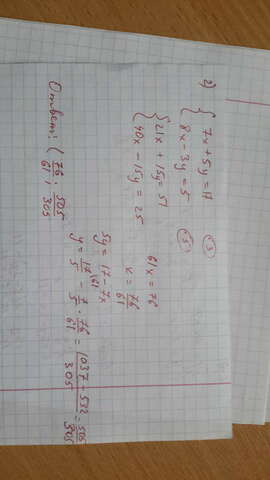 2) { 7x + 5y = 17 (·3)
8x - 3y = 5 (·5)
{ 21x + 15y = 51
40x - 15y = 25
61x = 76
x = 76/61
5y = 17 - 7x
y = 17/5 - 7/5 · 76/61 = (1037 - 532)/305 = 505/305
Ответ: (76/61 ; 505/305